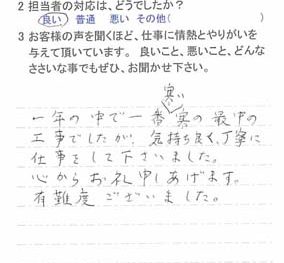 2 担当者の対応は、どうでしたか?
(良い 普通 悪い その他( )
3 お客様の声を聞くほど、仕事に情熱とやりがいを
与えて頂いています。 良いこと、悪いこと、どんな
ささいな事でもぜひ、お聞かせ下さい。
寒い
一年の中で一番寒の最中の
工事でしたが、気持ち良く、丁寧に
仕事をして下さいました。
心からお礼申しあげます。
有難度ございました。